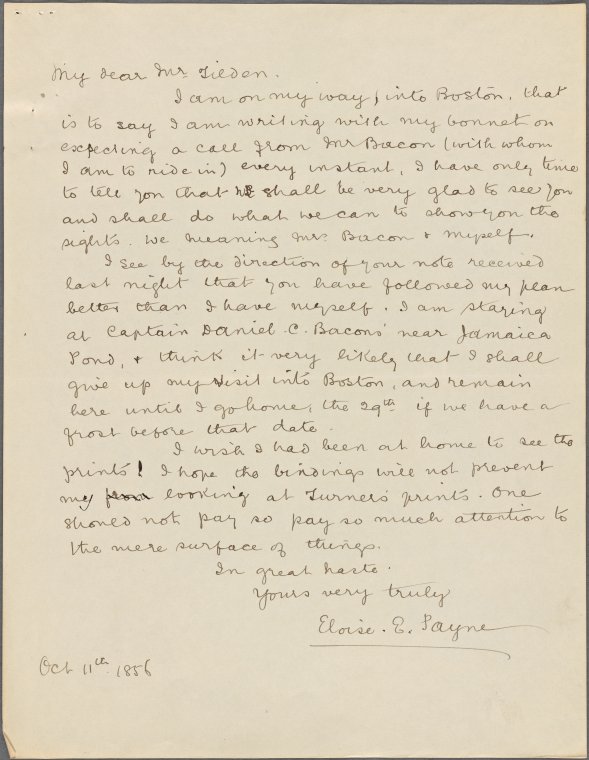 My dear Mr. Tilden.
I am on my way, into Boston, that
is to say I am writing with my bonnet on
expecting a call from Mr Bacon (with whom
I am to ride in) every instant, I have only time
to tell you that we shall be very glad to see you
and shall do what we can to show you the
sights. We meaning Mrs. Bacon & myself.
I see by the direction of your note received
last night that you have followed my plan
better than I have myself. I am staying
at Captain Daniel. C. Bacons' near Jamaica
Pond, & think it very likely that I shall
give up my visit into Boston, and remain
here until I go home, the 29th if we have a
frost before that date.
I wish I had been at home to see the
prints! I hope the bindings will not prevent
my looking at Turners prints. One
should not pay so pay so much attention to
the mere surface of things.
In great haste.
Yours very truly
Eloise. E. Payne
Oct 11th. 1856